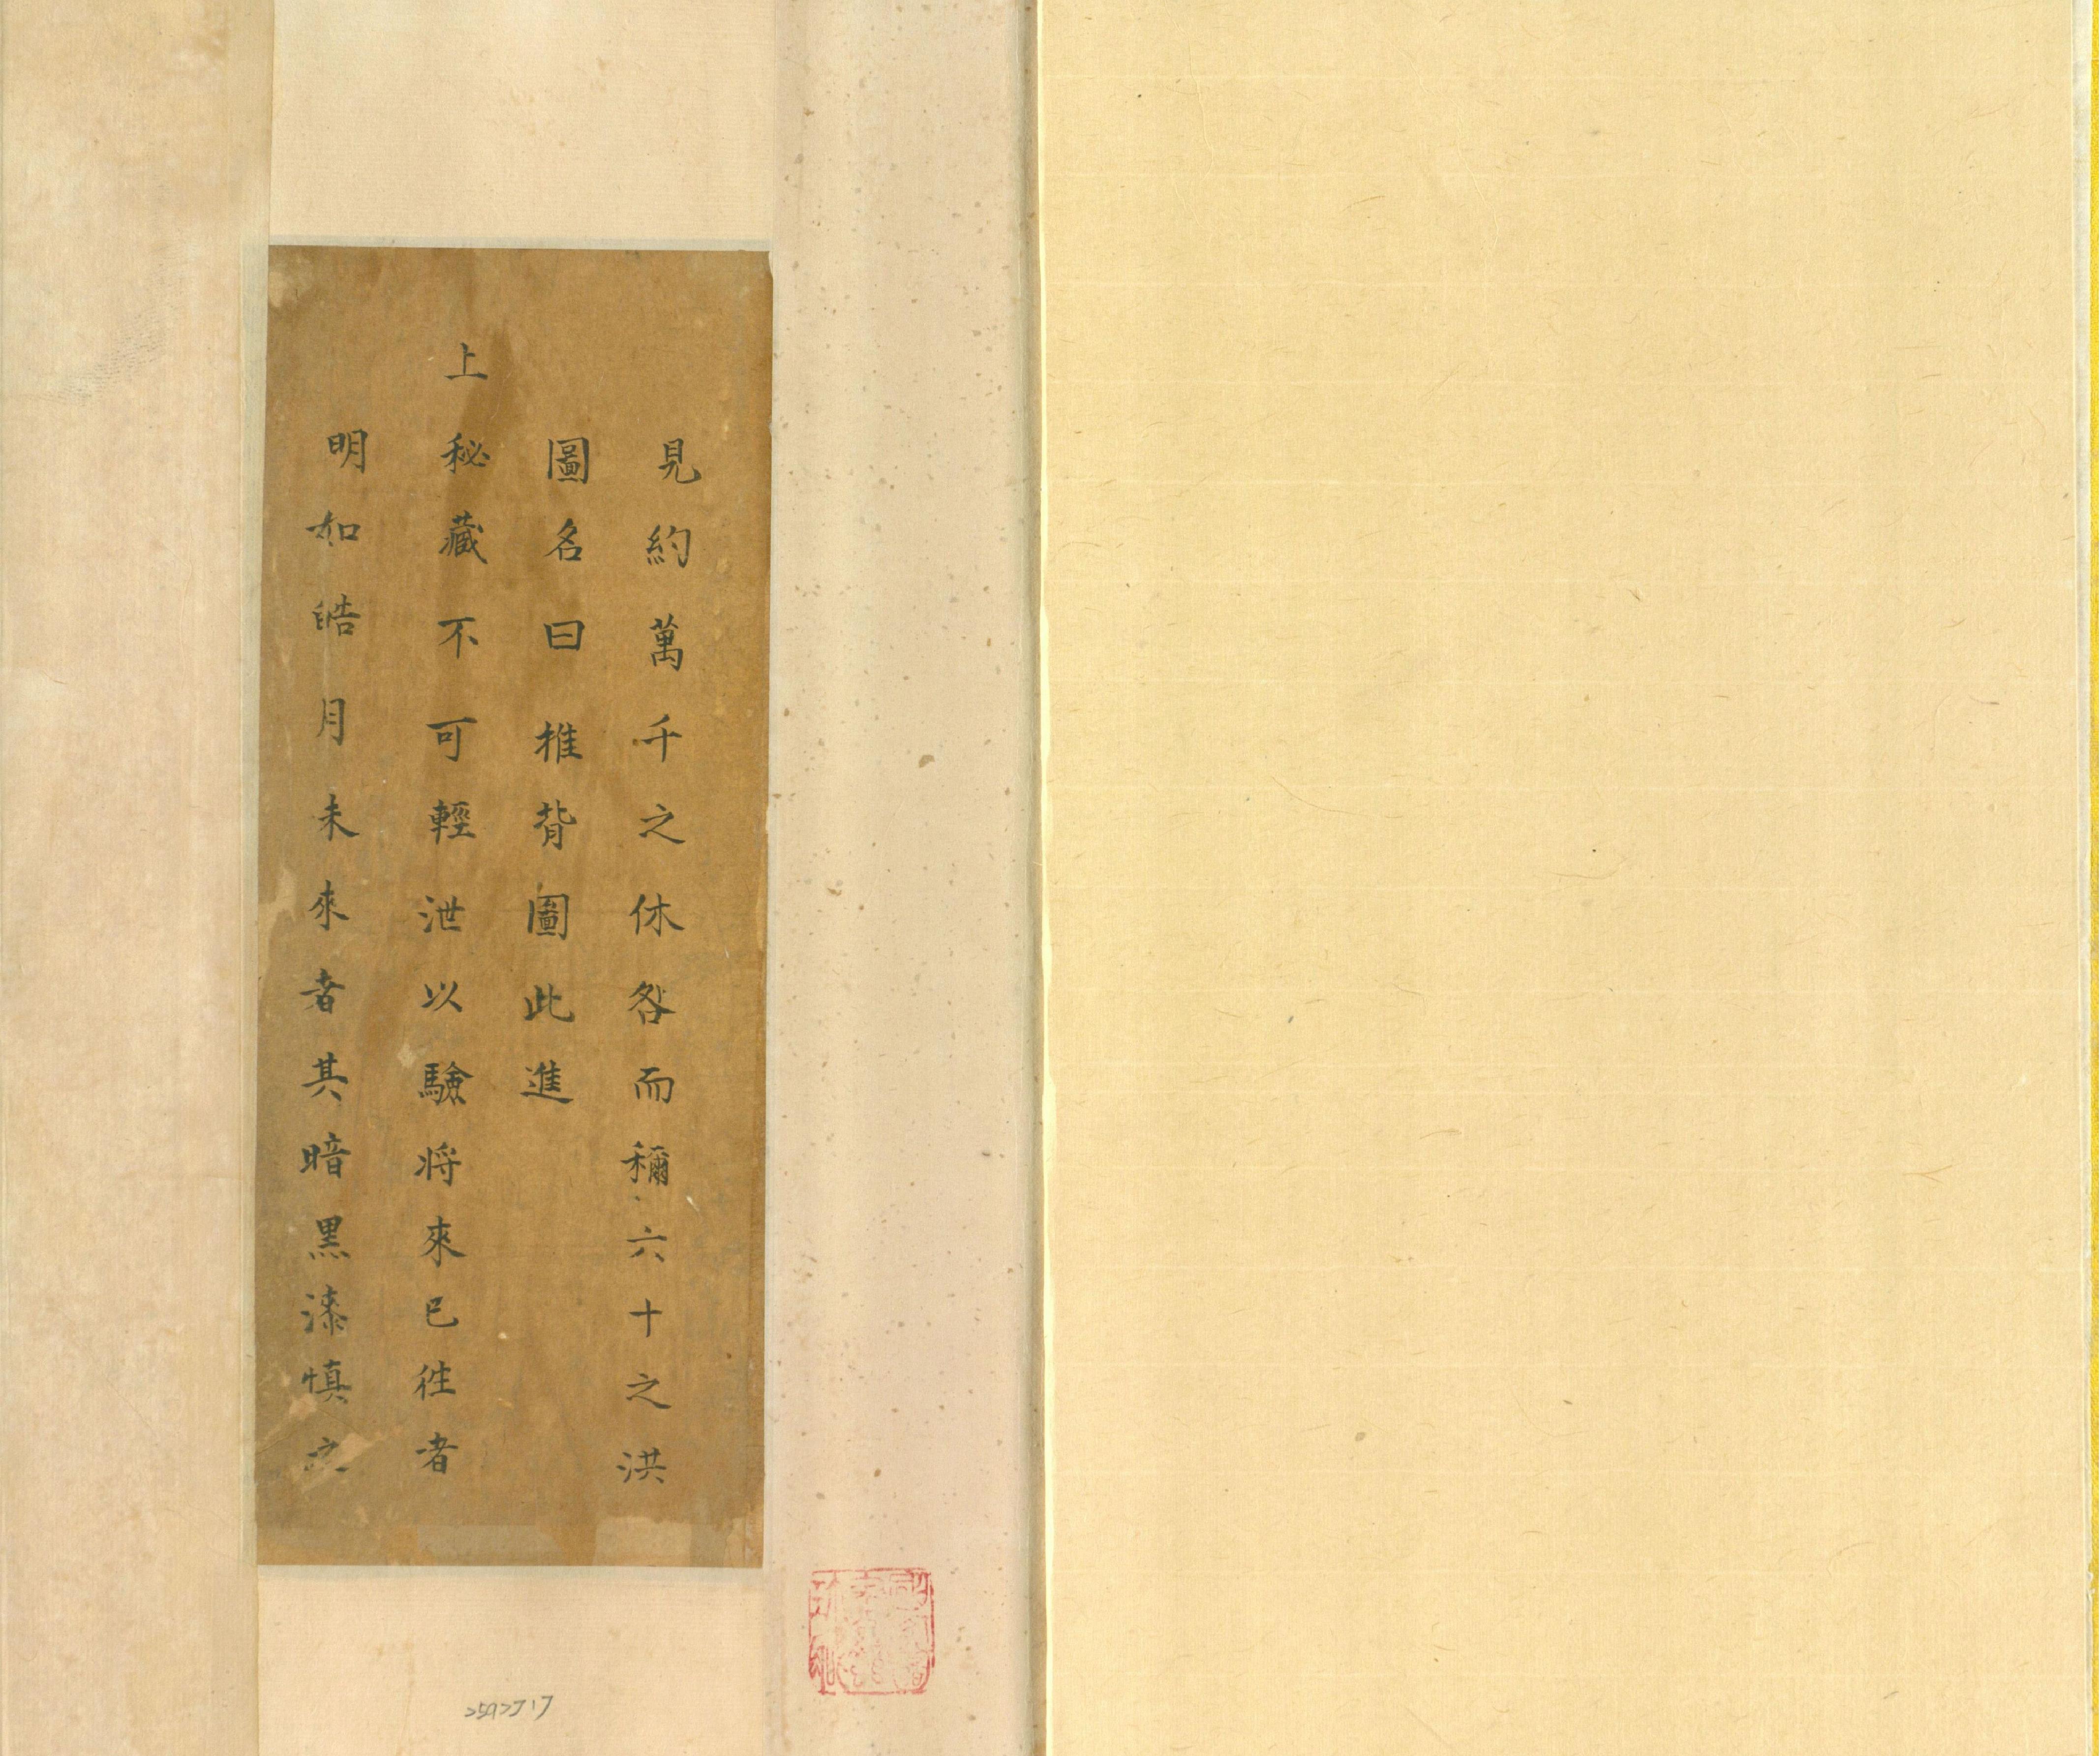 見約萬千之休咎而穪六十之洪
圖名曰推背圖此進
上秘藏不可輕泄以驗将來已徃者
明如皓月未來者其暗黒漆慎之